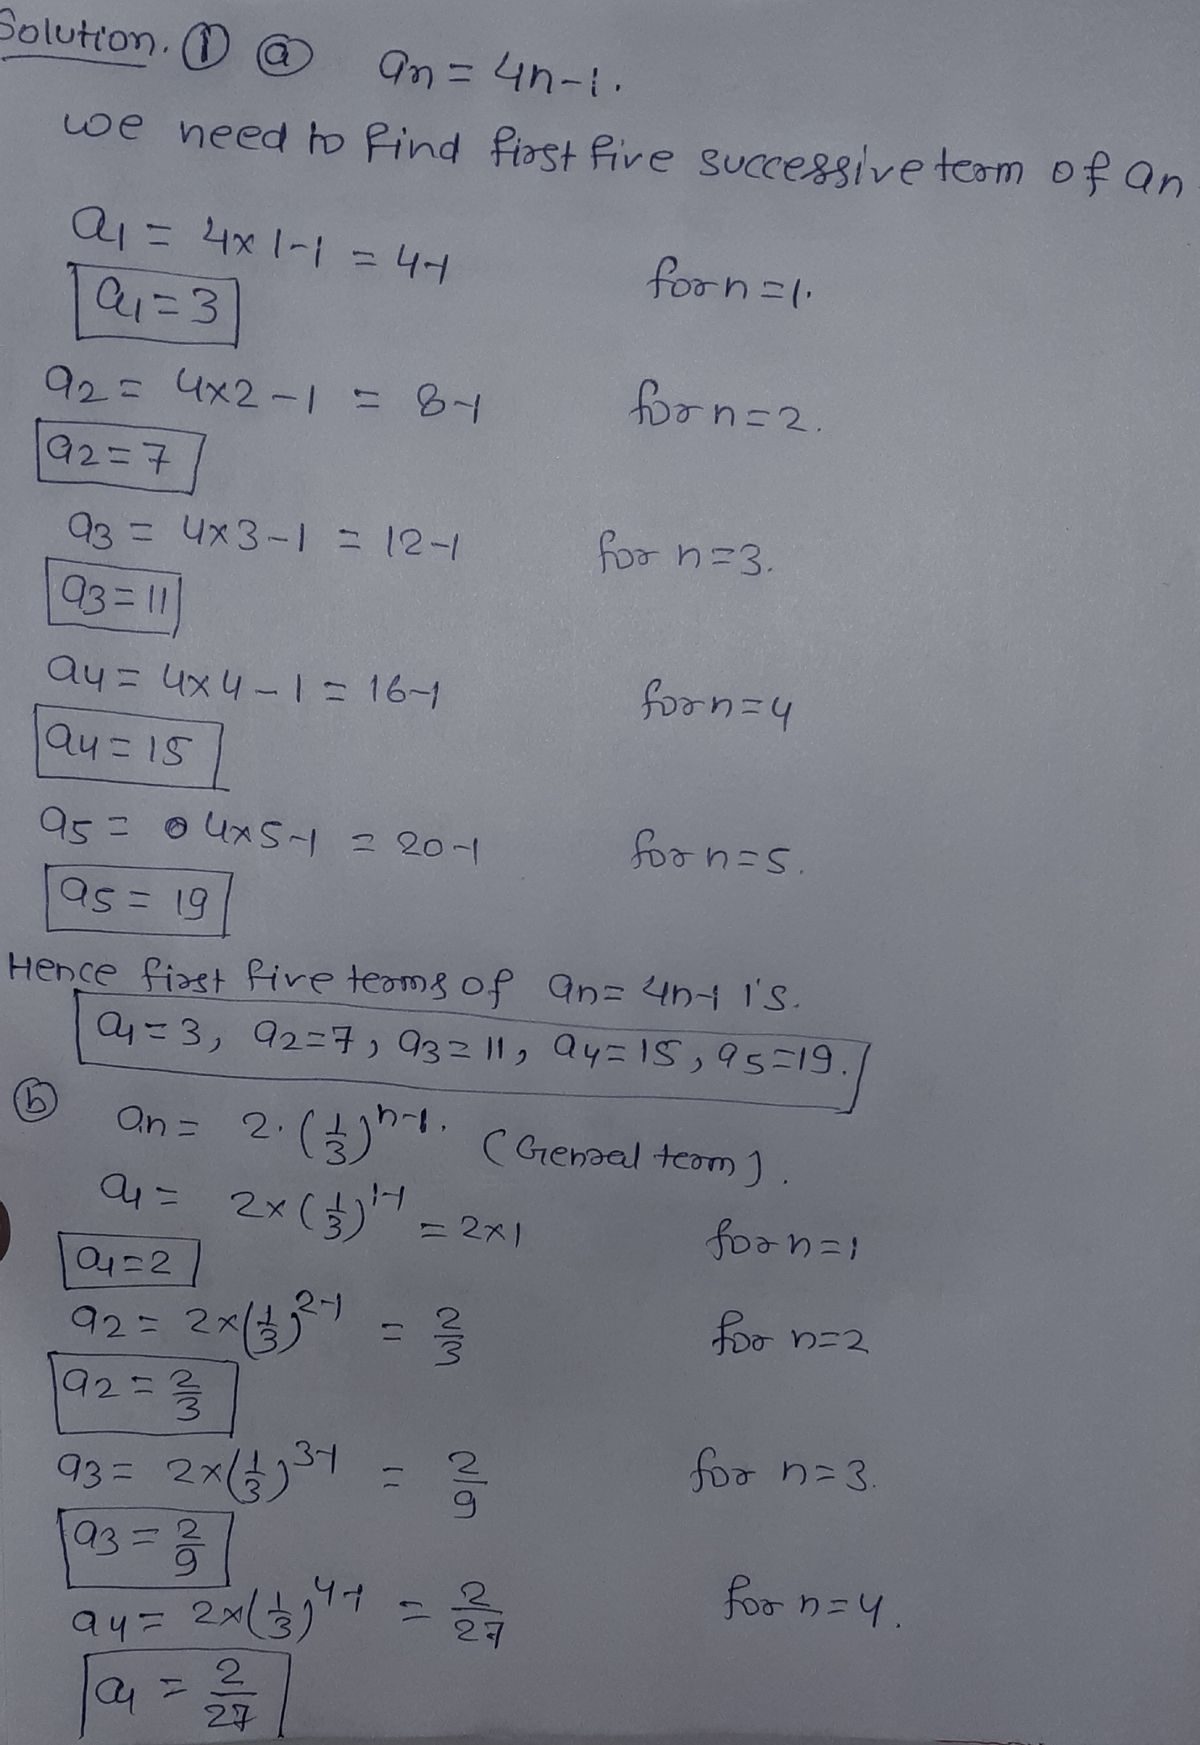 Solution. ① ⓐ an = 4n-1.
we need to find first five successive term of an
a1 = 4×1-1 = 4-1 for n=1.
a1=3
a2 = 4×2-1 = 8-1 for n=2.
a2=7
a3 = 4×3-1 = 12-1 for n=3.
a3=11
a4 = 4×4-1 = 16-1 for n=4
a4=15
a5 = 4×5-1 = 20-1 for n=5.
a5=19
Hence first five terms of an=4n-1 is.
a1=3, a2=7, a3=11, a4=15, a5=19.
ⓑ an = 2.(1/3)^n-1. (Genral term).
a1 = 2×(1/3)^1-1 = 2×1 for n=1
a1=2
a2 = 2×(1/3)^2-1 = 2/3 for n=2
a2 = 2/3
a3 = 2×(1/3)^3-1 = 2/9 for n=3.
a3 = 2/9
a4 = 2×(1/3)^4-1 = 2/27 for n=4.
a4 = 2/27